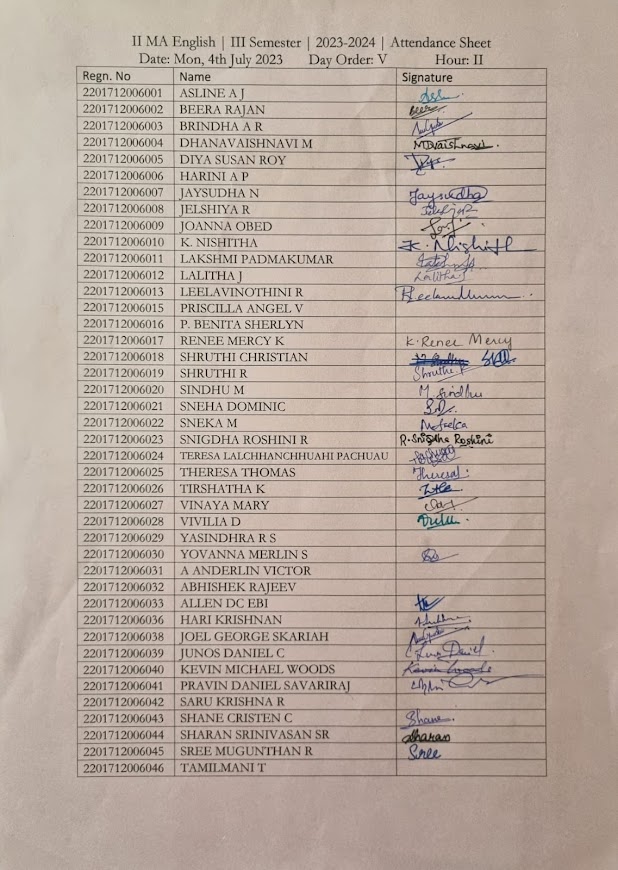 II MA English | III Semester | 2023-2024 | Attendance Sheet
Date: Mon, 4th July 2023 Day Order: V Hour: II
Regn. No Name Signature
2201712006001 ASLINE A J
2201712006002 BEERA RAJAN
2201712006003 BRINDHA A R
2201712006004 DHANAVAISHNAVI M M.Dvaishnavi
2201712006005 DIYA SUSAN ROY
2201712006006 HARINI A P
2201712006007 JAYSUDHA N Jaysudha
2201712006008 JELSHIYA R
2201712006009 JOANNA OBED
2201712006010 K. NISHITHA K. Nishith
2201712006011 LAKSHMI PADMAKUMAR
2201712006012 LALITHA J Lalitha J
2201712006013 LEELAVINOTHINI R
2201712006015 PRISCILLA ANGEL V
2201712006016 P. BENITA SHERLYN
2201712006017 RENEE MERCY K K. Renee Mercy
2201712006018 SHRUTHI CHRISTIAN
2201712006019 SHRUTHI R Shruthi R
2201712006020 SINDHU M M. Sindhu
2201712006021 SNEHA DOMINIC
2201712006022 SNEKA M
2201712006023 SNIGDHA ROSHINI R R. Snigdha Roshini
2201712006024 TERESA LALCHHANCHHUAHI PACHUAU
2201712006025 THERESA THOMAS
2201712006026 TIRSHATHA K
2201712006027 VINAYA MARY
2201712006028 VIVILIA D
2201712006029 YASINDHRA R S
2201712006030 YOVANNA MERLIN S
2201712006031 A ANDERLIN VICTOR
2201712006032 ABHISHEK RAJEEV
2201712006033 ALLEN DC EBI
2201712006036 HARI KRISHNAN
2201712006038 JOEL GEORGE SKARIAH
2201712006039 JUNOS DANIEL C
2201712006040 KEVIN MICHAEL WOODS Kevin Woods
2201712006041 PRAVIN DANIEL SAVARIRAJ
2201712006042 SARU KRISHNA R
2201712006043 SHANE CRISTEN C Shane
2201712006044 SHARAN SRINIVASAN SR Sharan
2201712006045 SREE MUGUNTHAN R Sree
2201712006046 TAMILMANI T